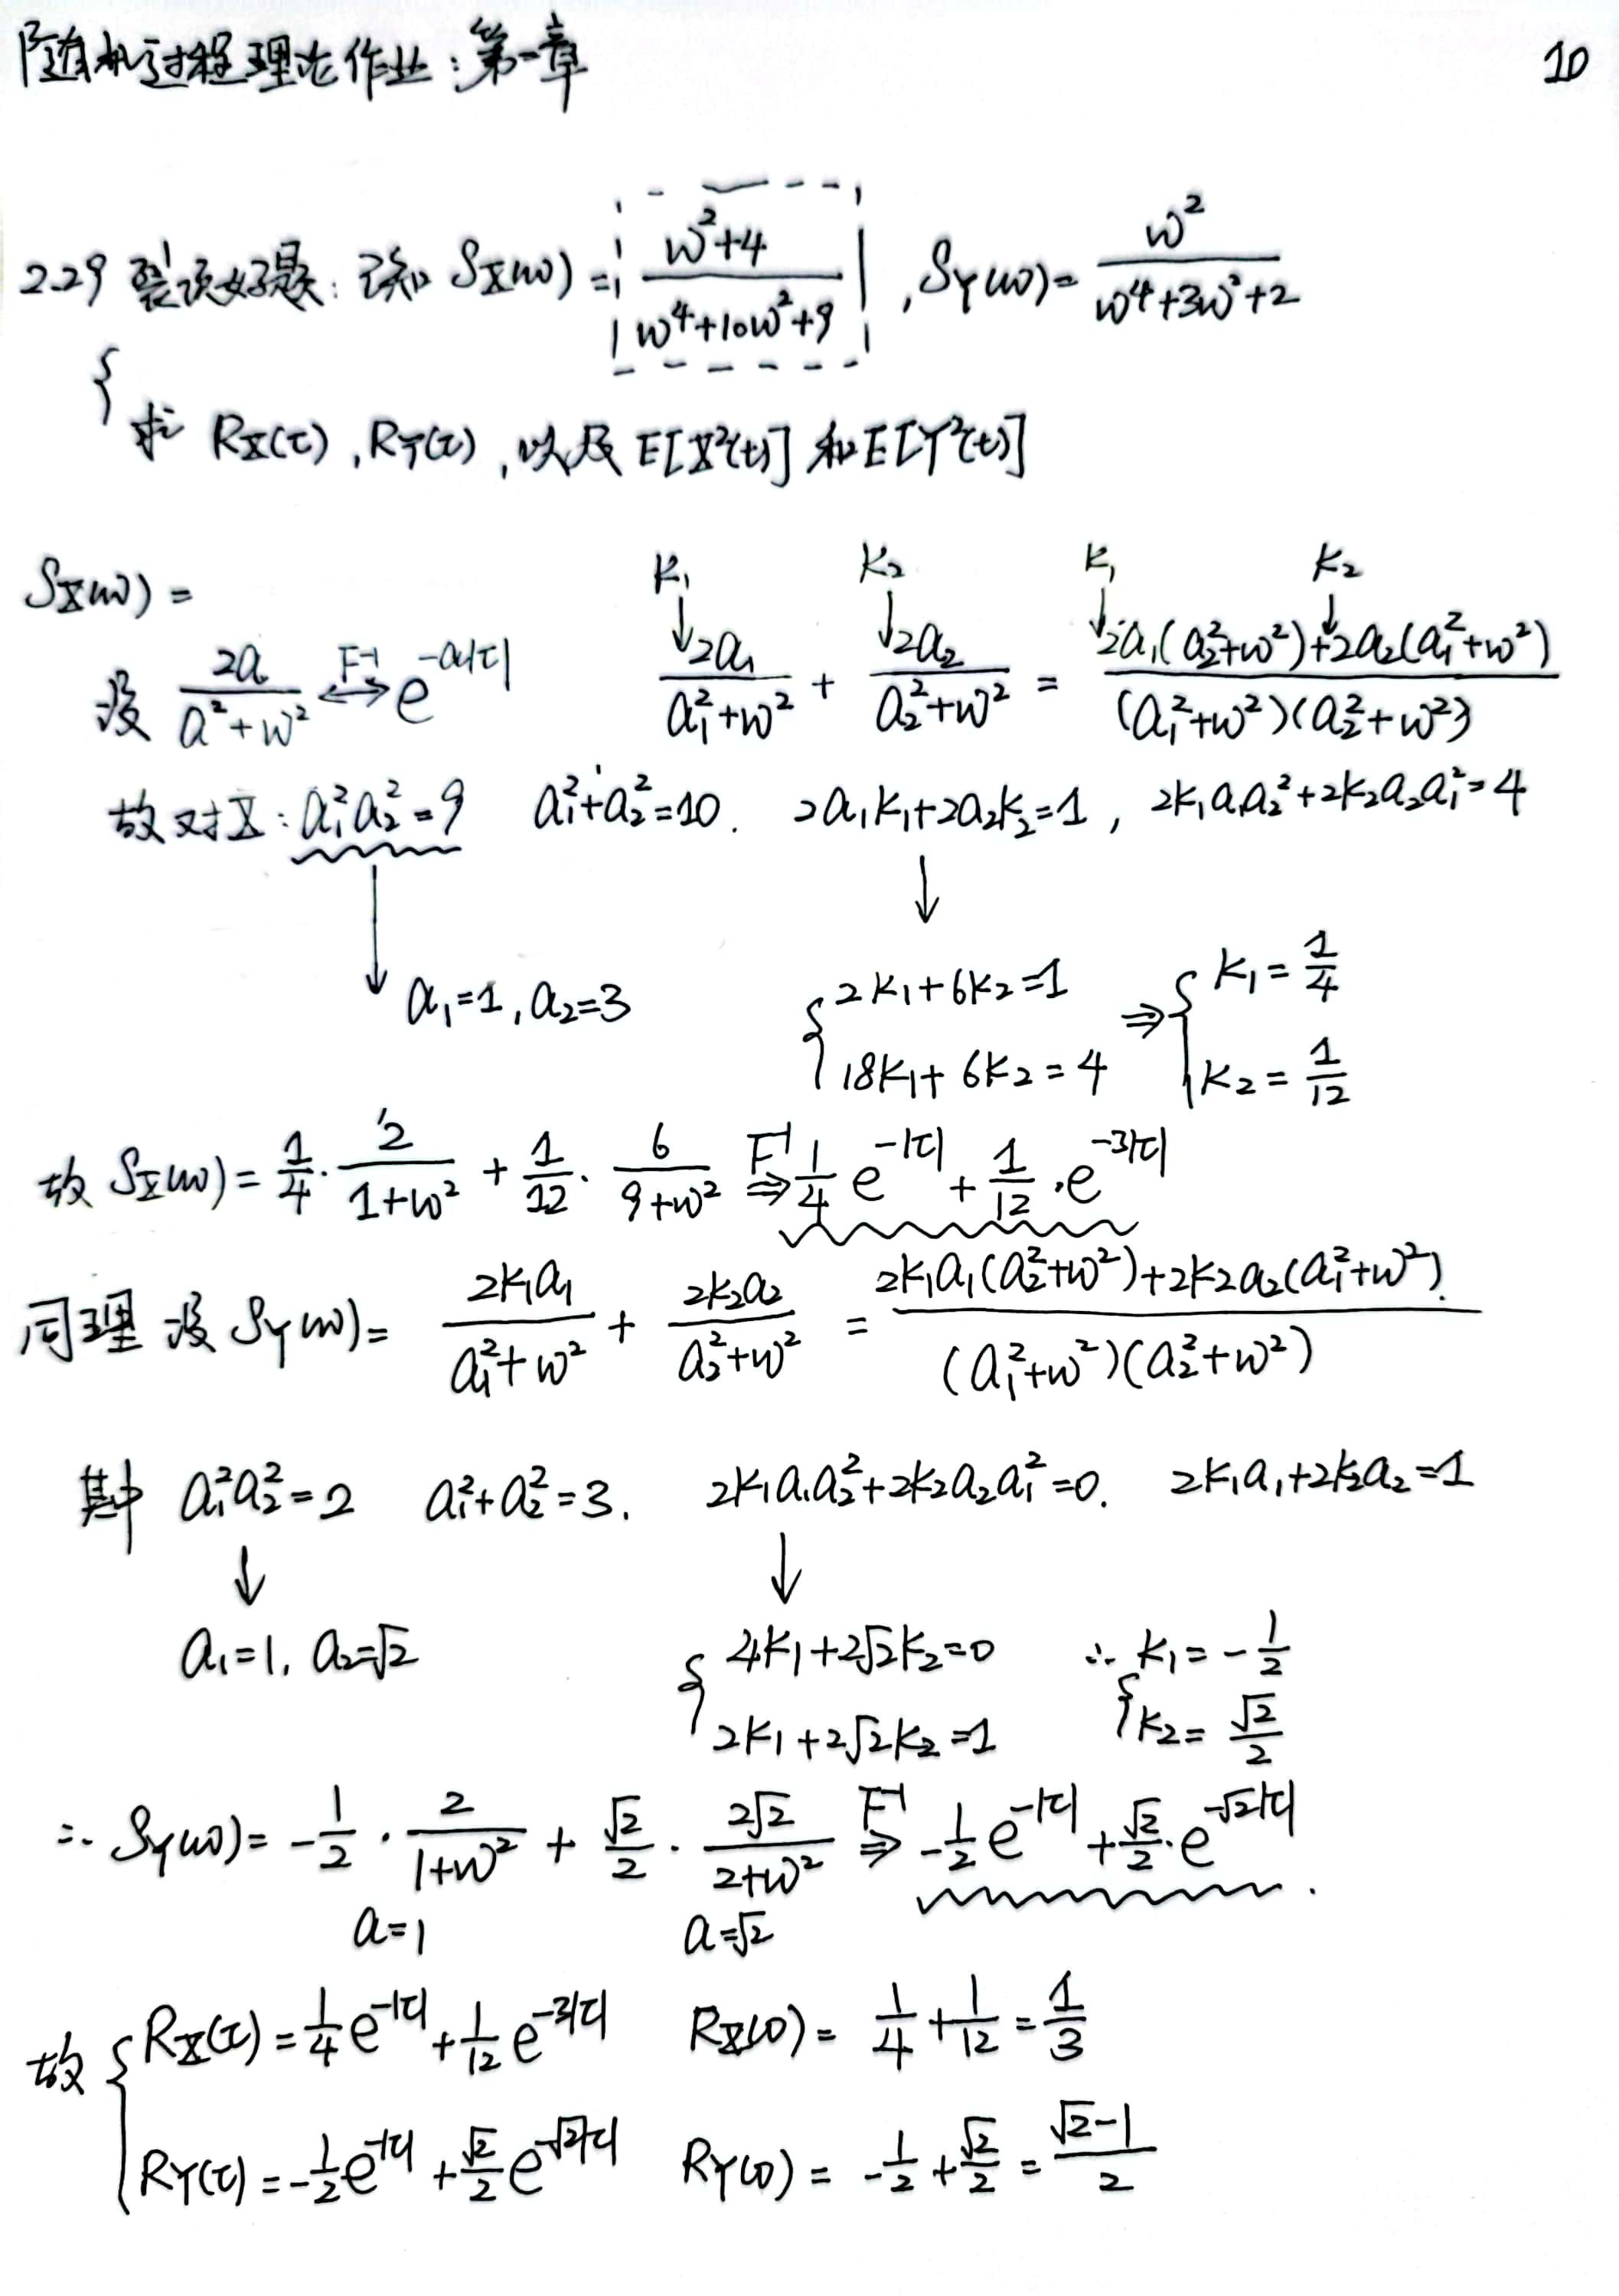 随机过程理论作业：第一章 10
2.29 裂项好题：已知 S_X(ω) = (ω²+4)/(ω⁴+10ω²+9) , S_Y(ω) = ω²/(ω⁴+3ω²+2)
求 R_X(τ) , R_Y(τ) , 以及 E[X²(t)] 和 E[Y²(t)]
S_X(ω) =
K₁ K₂ K₁ K₂
设 2a/(a²+ω²) ⟷ F⁻¹ e^(-a|τ|) 2a₁/(a₁²+ω²) + 2a₂/(a₂²+ω²) = (2a₁(a₂²+ω²)+2a₂(a₁²+ω²))/((a₁²+ω²)(a₂²+ω²))
故对X：a₁²a₂²=9 a₁²+a₂²=10. 2a₁K₁+2a₂K₂=1 , 2K₁a₁a₂²+2K₂a₂a₁²=4
↓ ↓
a₁=1, a₂=3 { 2K₁+6K₂=1 18K₁+6K₂=4 ⇒ { K₁=1/4 K₂=1/12
故 S_X(ω) = 1/4 · 2/(1+ω²) + 1/12 · 6/(9+ω²) F⁻¹ ⇒ 1/4 e^(-|τ|) + 1/12 · e^(-3|τ|)
同理 设 S_Y(ω) = 2K₁a₁/(a₁²+ω²) + 2K₂a₂/(a₂²+ω²) = (2K₁a₁(a₂²+ω²)+2K₂a₂(a₁²+ω²))/((a₁²+ω²)(a₂²+ω²))
其中 a₁²a₂²=2 a₁²+a₂²=3. 2K₁a₁a₂²+2K₂a₂a₁²=0. 2K₁a₁+2K₂a₂=1
↓ ↓
a₁=1, a₂=√2 { 4K₁+2√2K₂=0 2K₁+2√2K₂=1 ∴ { K₁=-1/2 K₂=√2/2
∴ S_Y(ω) = -1/2 · 2/(1+ω²) + √2/2 · 2√2/(2+ω²) F⁻¹ ⇒ -1/2 e^(-|τ|) + √2/2 · e^(-√2|τ|) .
a=1 a=√2
故 { R_X(τ) = 1/4 e^(-|τ|) + 1/12 e^(-3|τ|) R_X(0) = 1/4 + 1/12 = 1/3
R_Y(τ) = -1/2 e^(-|τ|) + √2/2 e^(-√2|τ|) R_Y(0) = -1/2 + √2/2 = (√2-1)/2